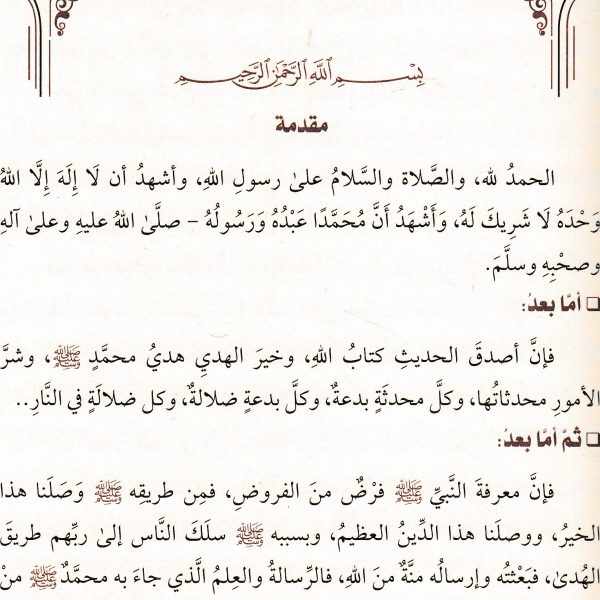 بِسْمِ اللَّهِ الرَّحْمَنِ الرَّحِيمِ
مقدمة
الحمدُ لله، والصَّلاة والسَّلامُ علىٰ رسولِ اللهِ، وأشهدُ أن لَا إِلَهَ إِلَّا اللهُ
وَحْدَهُ لَا شَرِيكَ لَهُ، وَأَشْهَدُ أَنَّ مُحَمَّدًا عَبْدُهُ وَرَسُولُهُ – صلَّىٰ اللهُ عليهِ وعلىٰ آلهِ
وصحْبِهِ وسلَّمَ.
❑ أمَّا بعدُ:
فإنَّ أصدقَ الحديثِ كتابُ اللهِ، وخيرَ الهديِ هديُ محمَّدٍ ﷺ، وشرَّ
الأمورِ محدثاتُها، وكلَّ محدثَةٍ بدعةٌ، وكلَّ بدعةٍ ضلالةٌ، وكل ضلالَةٍ في النَّارِ..
❑ ثمَّ أمَّا بعدُ:
فإنَّ معرفةَ النَّبيِّ ﷺ فرْضٌ منَ الفروضِ، فمِن طريقِه ﷺ وَصَلَنا هذا
الخيرُ، ووصلَنا هذا الدِّينُ العظيمُ، وبسببه ﷺ سلَكَ النَّاس إلىٰ ربِّهم طريقَ
الهُدىٰ، فبَعْثتُه وإرسالُه منَّةٌ منَ اللهِ، فالرِّسالةُ والعِلمُ الَّذي جاءَ به محمَّدٌ ﷺ منْ